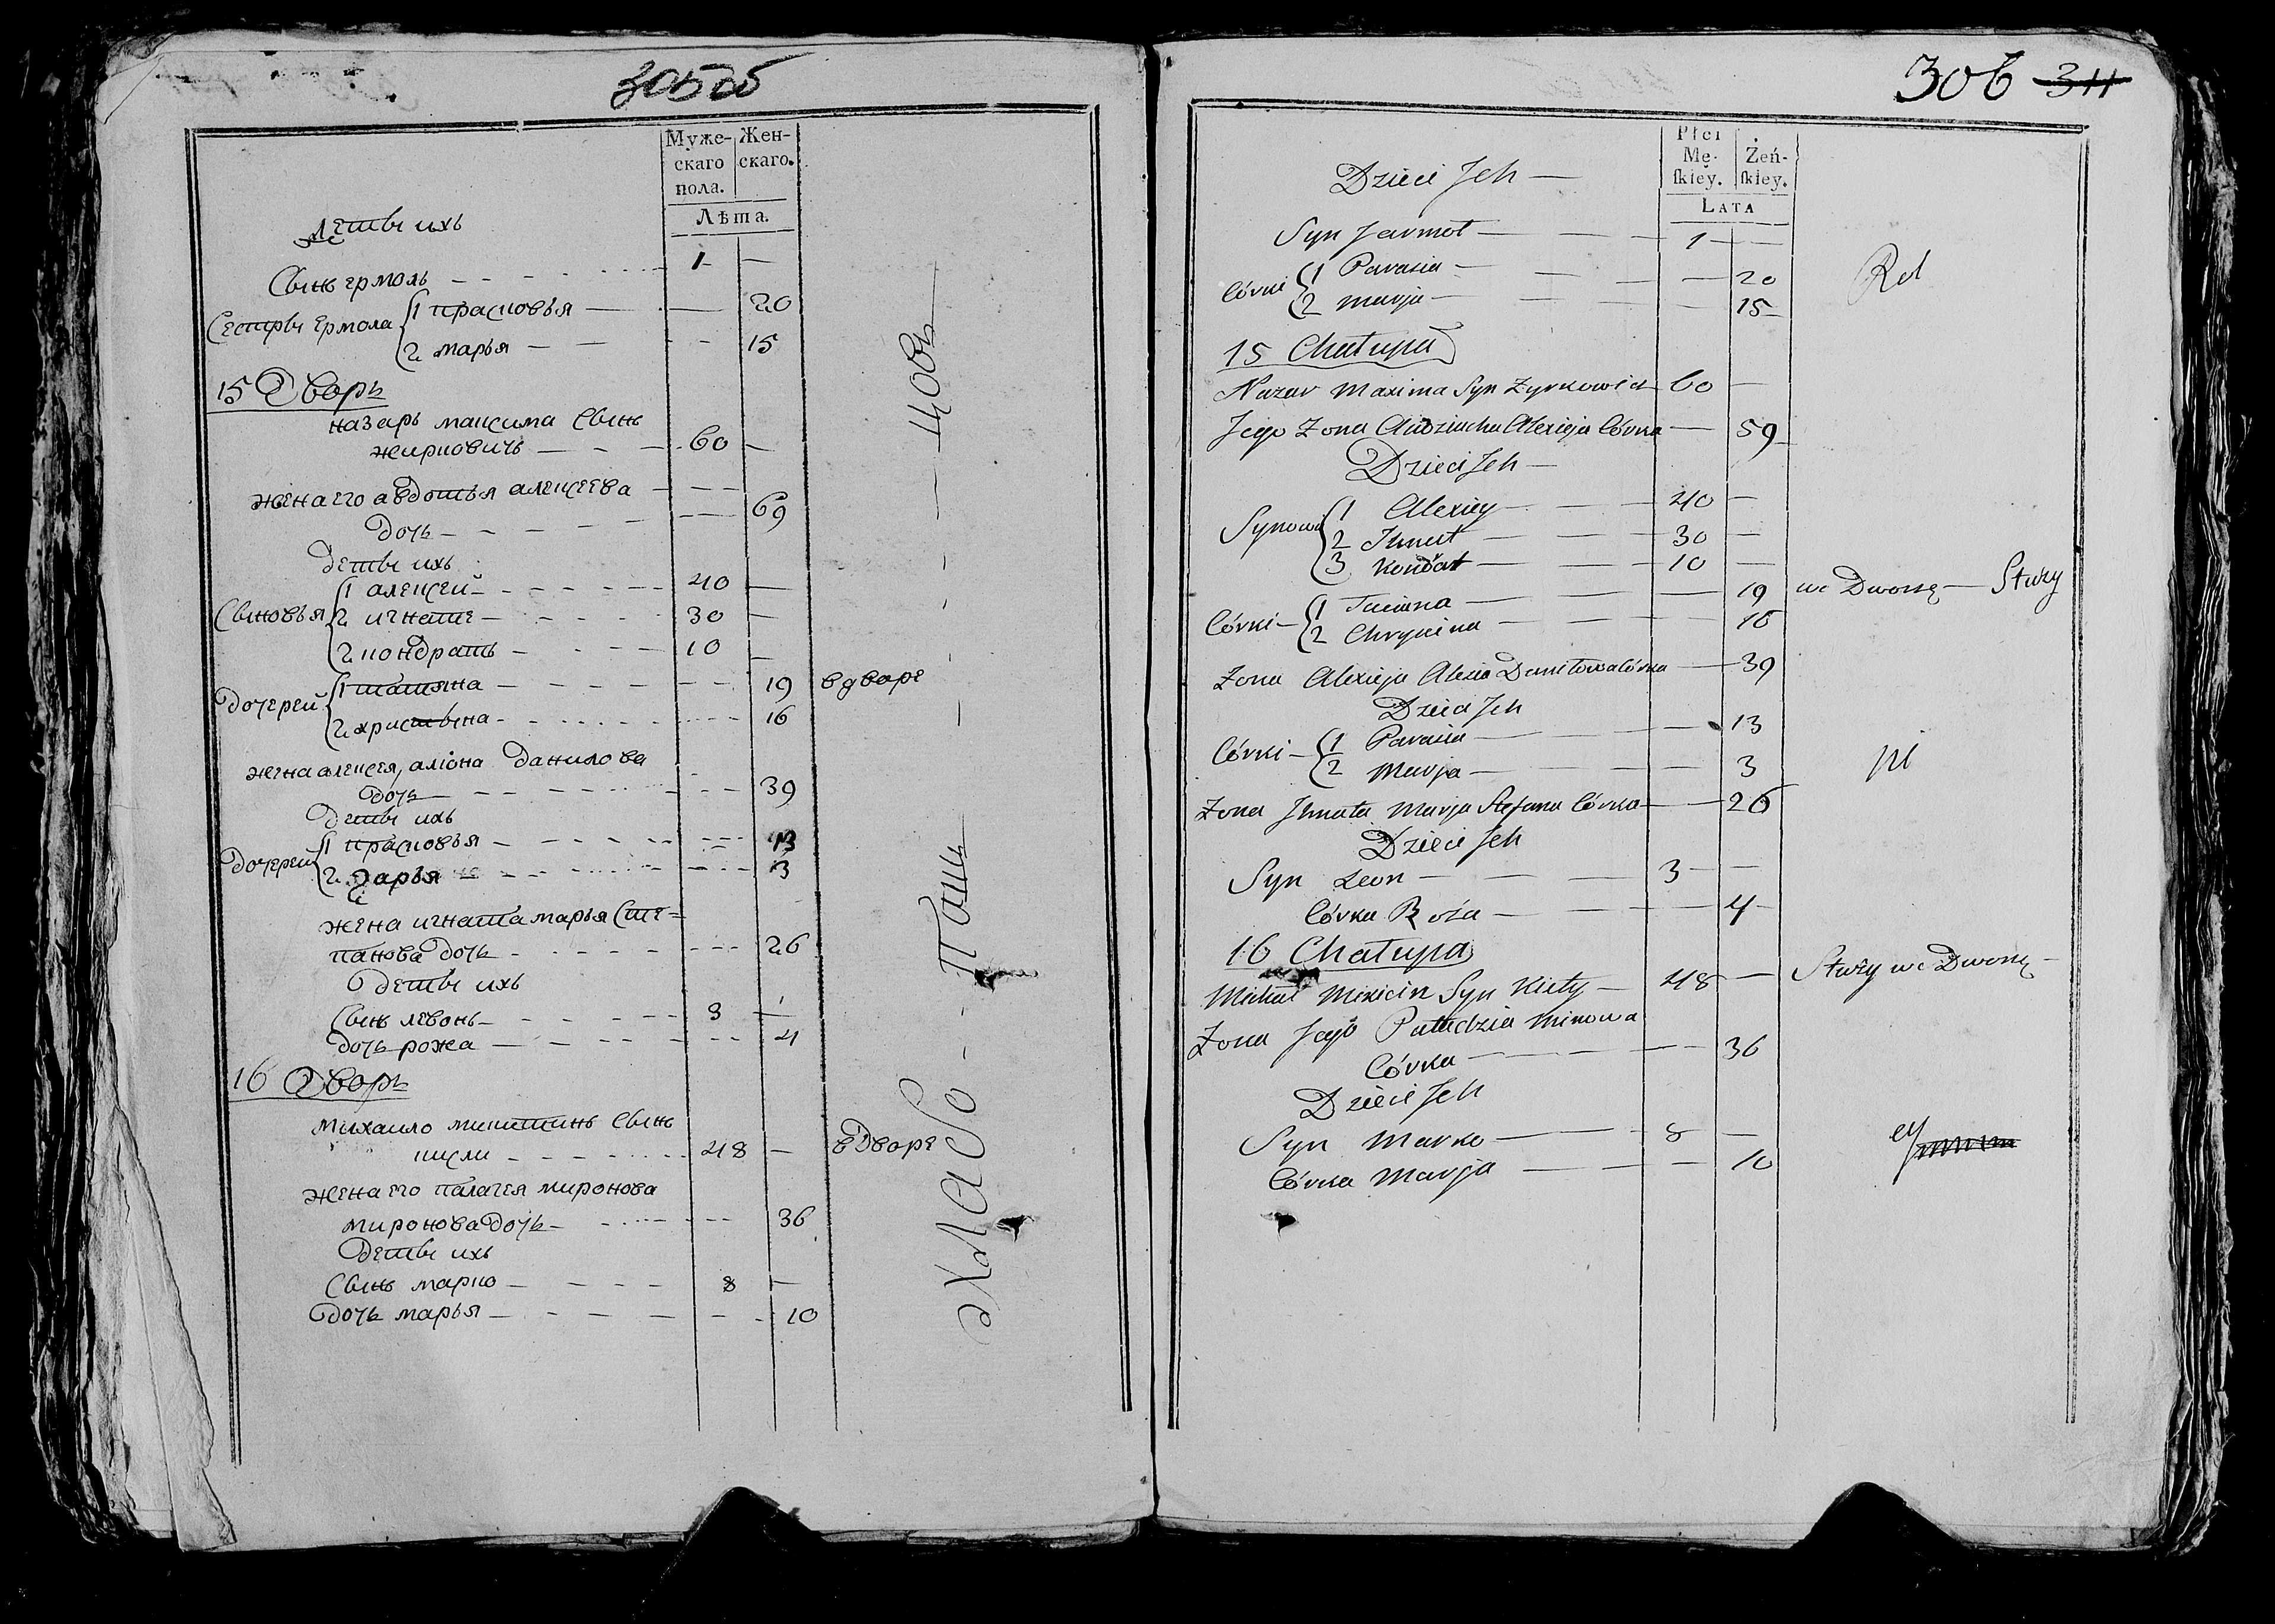 305 об
Муже-
скаго
пола.
Жен-
скаго.
Лѣта.
детьи ихь
Сынь ермоль 1
Сестрьı Ермола 1 прасковья 20
2 марья 15
15 Дворь
назарь максима Сынь
жирковичь 60
жена его авдотья алексеева
дочь 69
детьи ихь
Сыновья 1 алексей 40
2 игнате 30
2 кондрать 10
дочерей 1 татяна 19 в дворе
2 христына 16
жена алексея, аліона данилова
дочь 39
детьи ихь
дочерей 1 прасковья 13
2 дарья 3
жена игната марья Сте=
панова дочь 26
детьи ихь
Сынь левонь 3
дочь рожа 4
16 Дворь
михаило микитинь Сынь
48 в дворе
жена его палагея миронова
миронова дочь 36
детьи ихь
Сынь марко 8
дочь марья 10
306 311
Płci
Mę-
skiey.
Żeń-
skiey.
LATA
Dzieci Jch
Syn Jarmoł 1
Córki 1 Parasia 20
2 Marja 15
Rol
15 Chałupa
Nazar Maxima Syn Żyrkowicz 60
Jego Żona Audziucha Alexieja Córka 59
Dzieci Jch
Synowi 1 Alexiey 40
2 Jhnat 30
3 Kondrat 10
Córki 1 Taciana 19 we Dworzę Służy
2 Chrycina 16
Żona Alexieja Alesia Daniłowa Córka 39
Dzieci Jch
Córki 1 Parasia 13
2 Marja 3
ni
Żona Jhnata Marja Stefana Córka 26
Dzieci Jch
Syn Leon 3
Córka Roża 4
16 Chałupa
Michał Mikicin Syn Kisły 48 Służy we Dworzę
Żona Jego Paładzia Mirowa
Córka 36
Dzieci Jch
Syn Marko 8
Córka Marja 10
cy